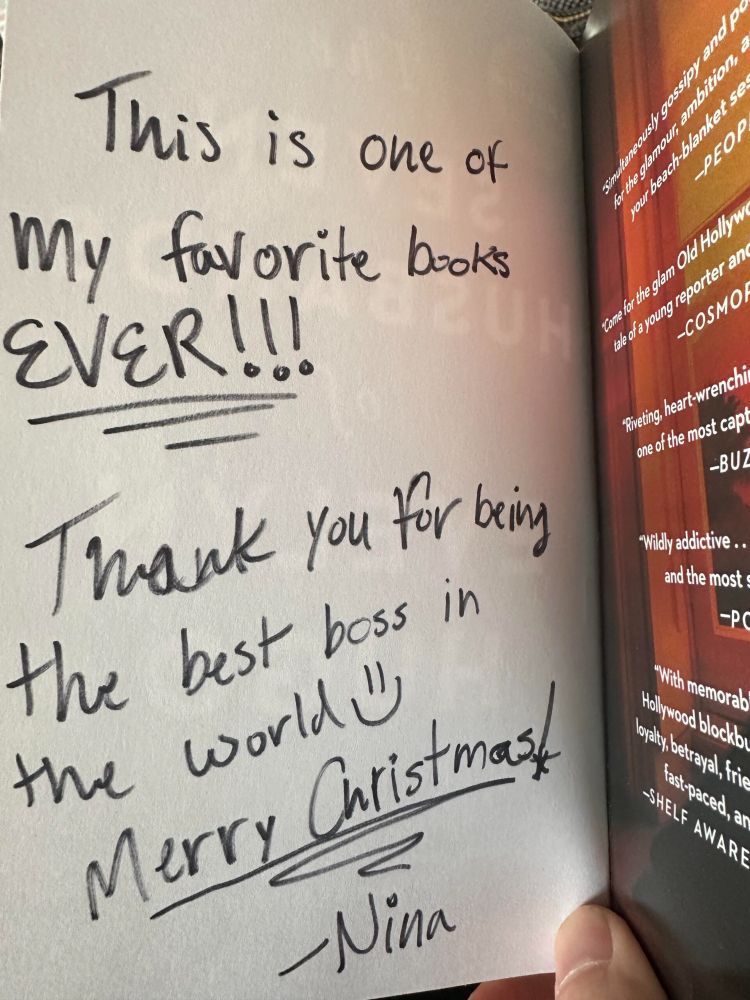 This is one of
My favorite books
EVER!!!
Thank you for being
the best boss in
the world
Merry Christmas!
—Nina
"Simultaneously gossipy and
for the glamour, ambition,
your beach-blanket
—PEOP
"Come for the glam Old Hollywo
tale of a young reporter and
—COSMOP
"Riveting, heart-wrenchin
one of the most capt
—BUZ
"Wildly addictive . .
and the most s
—PO
"With memorab
Hollywood blockbu
loyalty, betrayal, frie
fast-paced, an
—SHELF AWARE